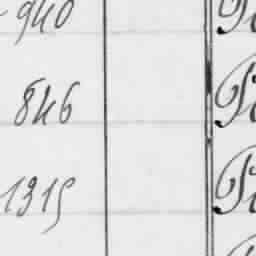 940
846
1315